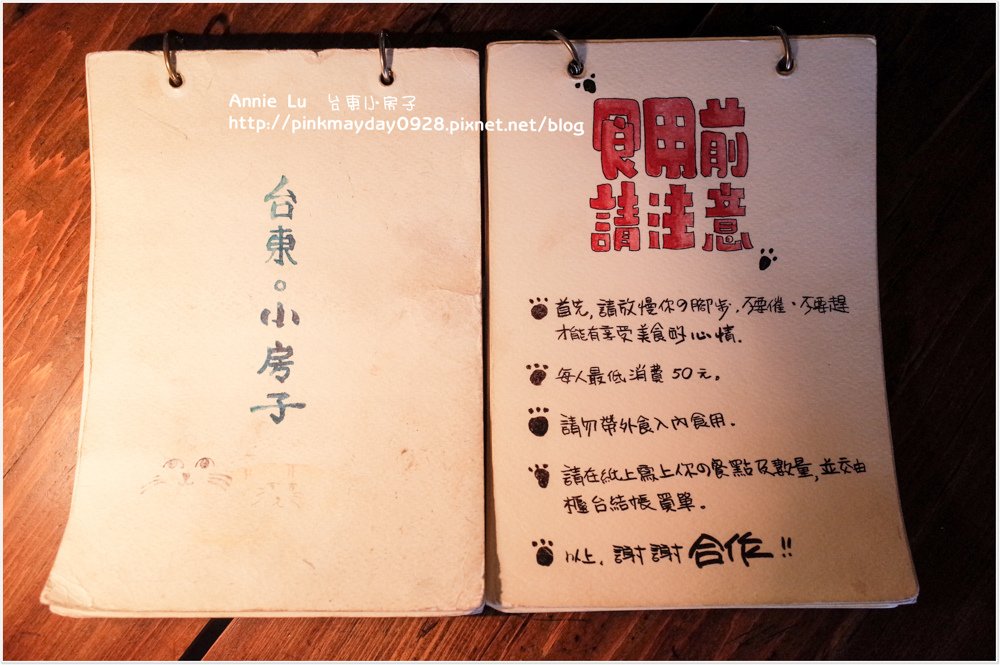 Annie Lu 台東小房子
http://pinkmayday0928.pixnet.net/blog
台東。小房子
食用前
請注意
首先,請放慢你の腳步,不要催、不要趕
才能有享受美食的心情.
每人最低消費50元。
請勿帶外食入內食用.
請在紙上寫上你の餐點及數量,並交由
櫃台結帳買單.
以上,謝謝合作!!